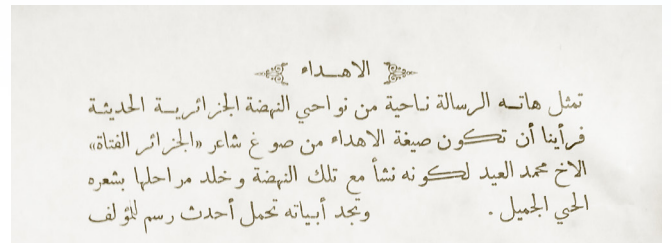 الاهداء
تمثل هاته الرسالة ناحية من نواحي النهضة الجزائرية الحديثة
فرأينا أن تكون صيغة الاهداء من صوغ شاعر «الجزائر الفتاة»
الاخ محمد العيد لكونه نشأ مع تلك النهضة وخلد مراحلها بشعره
الحي الجميل . وتجد أبياته تحمل أحدث رسم للمؤلف